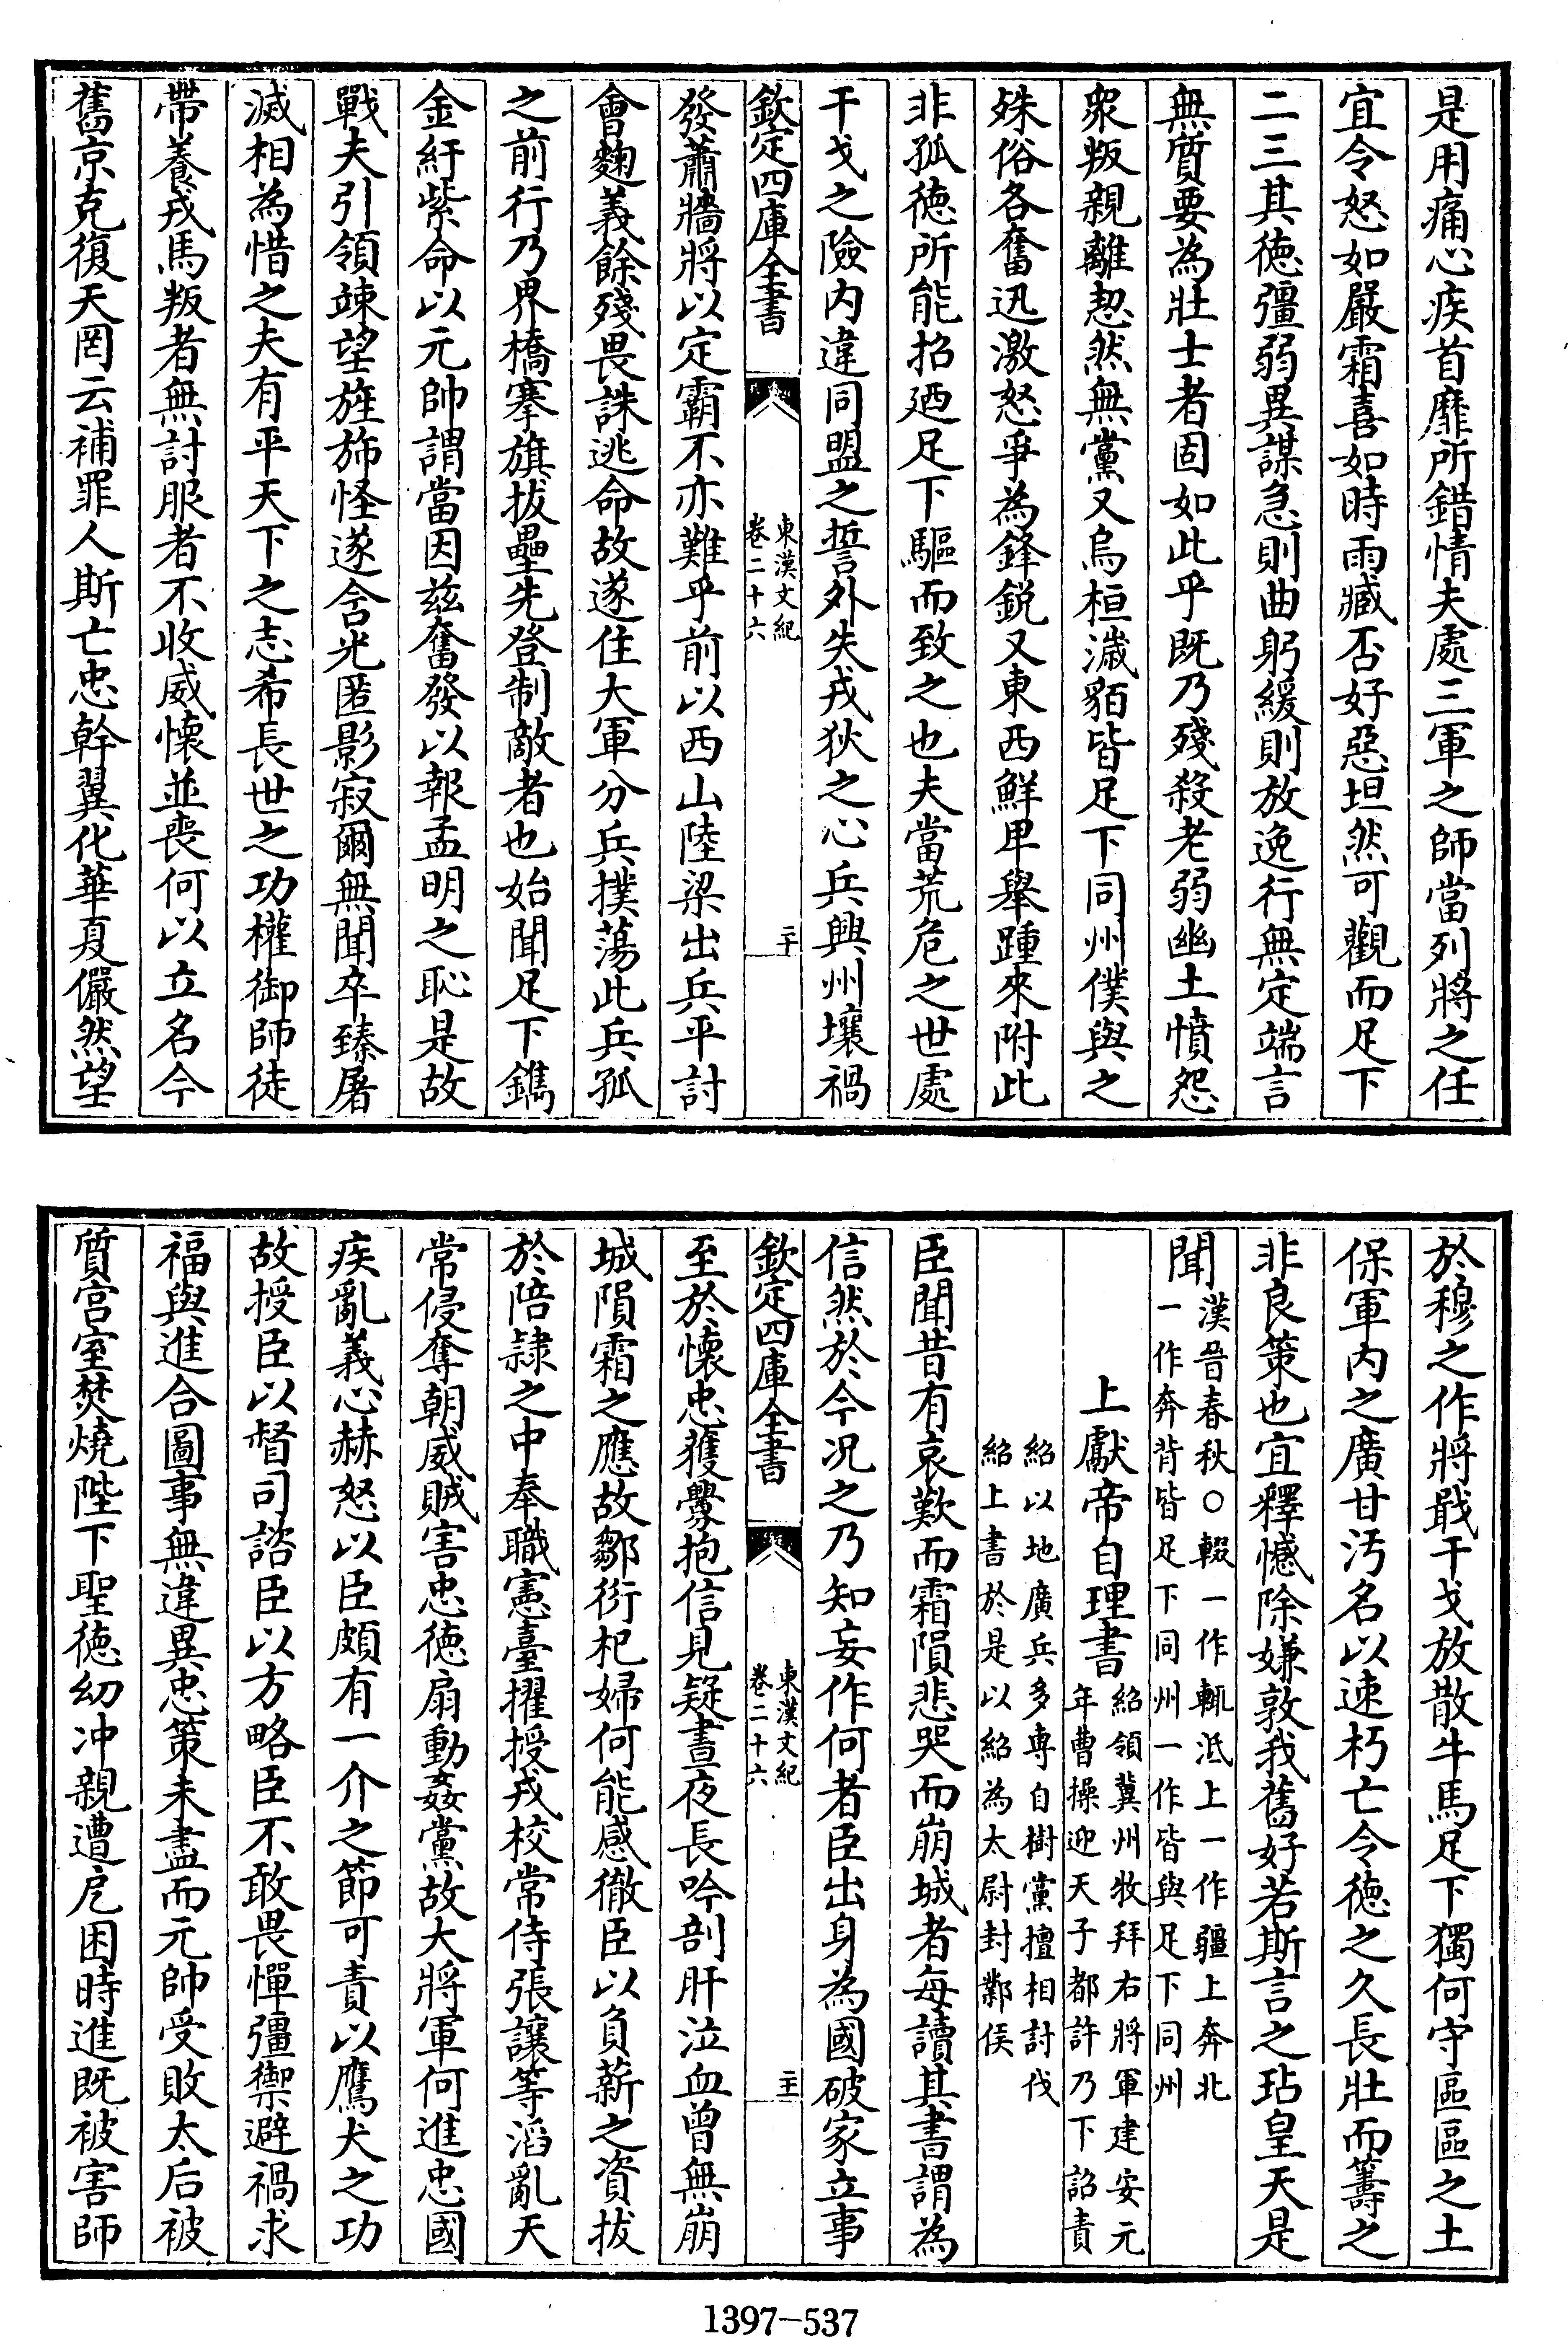 是用痛心疾首靡所錯情夫處三軍之師當列將之任
宜令怒如嚴霜喜如時雨臧否好惡坦然可觀而足下
二三其徳彊弱異謀急則曲躬緩則放逸行無定端言
無質要為壯士者固如此乎既乃殘殺老弱幽土憤怨
衆叛親離恝然無黨又烏桓濊貊皆足下同州僕與之
殊俗各奮迅激怒爭為鋒鋭又東西鮮卑舉踵來附此
非孤徳所能招廼足下驅而致之也夫當荒危之世處
干戈之險内違同盟之誓外失戎狄之心兵興州壤禍
欽定四庫全書
東漢文紀
卷二十六
二十
發蕭牆將以定霸不亦難乎前以西山陸梁出兵平討
會麴義餘殘畏誅逃命故遂住大軍分兵撲蕩此兵孤
之前行乃界橋搴旗拔壘先登制敵者也始聞足下鐫
金紆紫命以元帥謂當因兹奮發以報孟明之恥是故
戰夫引領竦望旌斾怪遂含光匿影寂爾無聞卒臻屠
滅相為惜之夫有平天下之志希長世之功權御師徒
帶養戎馬叛者無討服者不收威懷並喪何以立名今
舊京克復天罔云補罪人斯亡忠幹翼化華夏儼然望
於穆之作將戢干戈放散牛馬足下獨何守區區之土
保軍内之廣甘汚名以速朽亡令徳之久長壯而籌之
非良策也宜釋憾除嫌敦我舊好若斯言之玷皇天是
聞漢晉春秋○輟一作輒泜上一作疆上奔北
一作奔背皆足下同州一作皆與足下同州
上獻帝自理書紹領冀州牧拜右將軍建安元
年曹操迎天子都許乃下詔責
紹以地廣兵多專自樹黨擅相討伐
紹上書於是以紹為太尉封鄴侯
臣聞昔有哀歎而霜隕悲哭而崩城者每讀其書謂為
信然於今况之乃知妄作何者臣出身為國破家立事
欽定四庫全書
東漢文紀
卷二十六
二十一
至於懷忠獲釁抱信見疑晝夜長吟剖肝泣血曾無崩
城隕霜之應故鄒衍杞婦何能感徹臣以負薪之資拔
於陪隷之中奉職憲臺擢授戎校常侍張讓等滔亂天
常侵奪朝威賊害忠徳扇動姦黨故大將軍何進忠國
疾亂義心赫怒以臣頗有一介之節可責以鷹犬之功
故授臣以督司諮臣以方略臣不敢畏憚彊禦避禍求
福與進合圖事無違異忠策未盡而元帥受敗太后被
質宫室焚燒陛下聖徳幼冲親遭戹困時進既被害師
1397—537